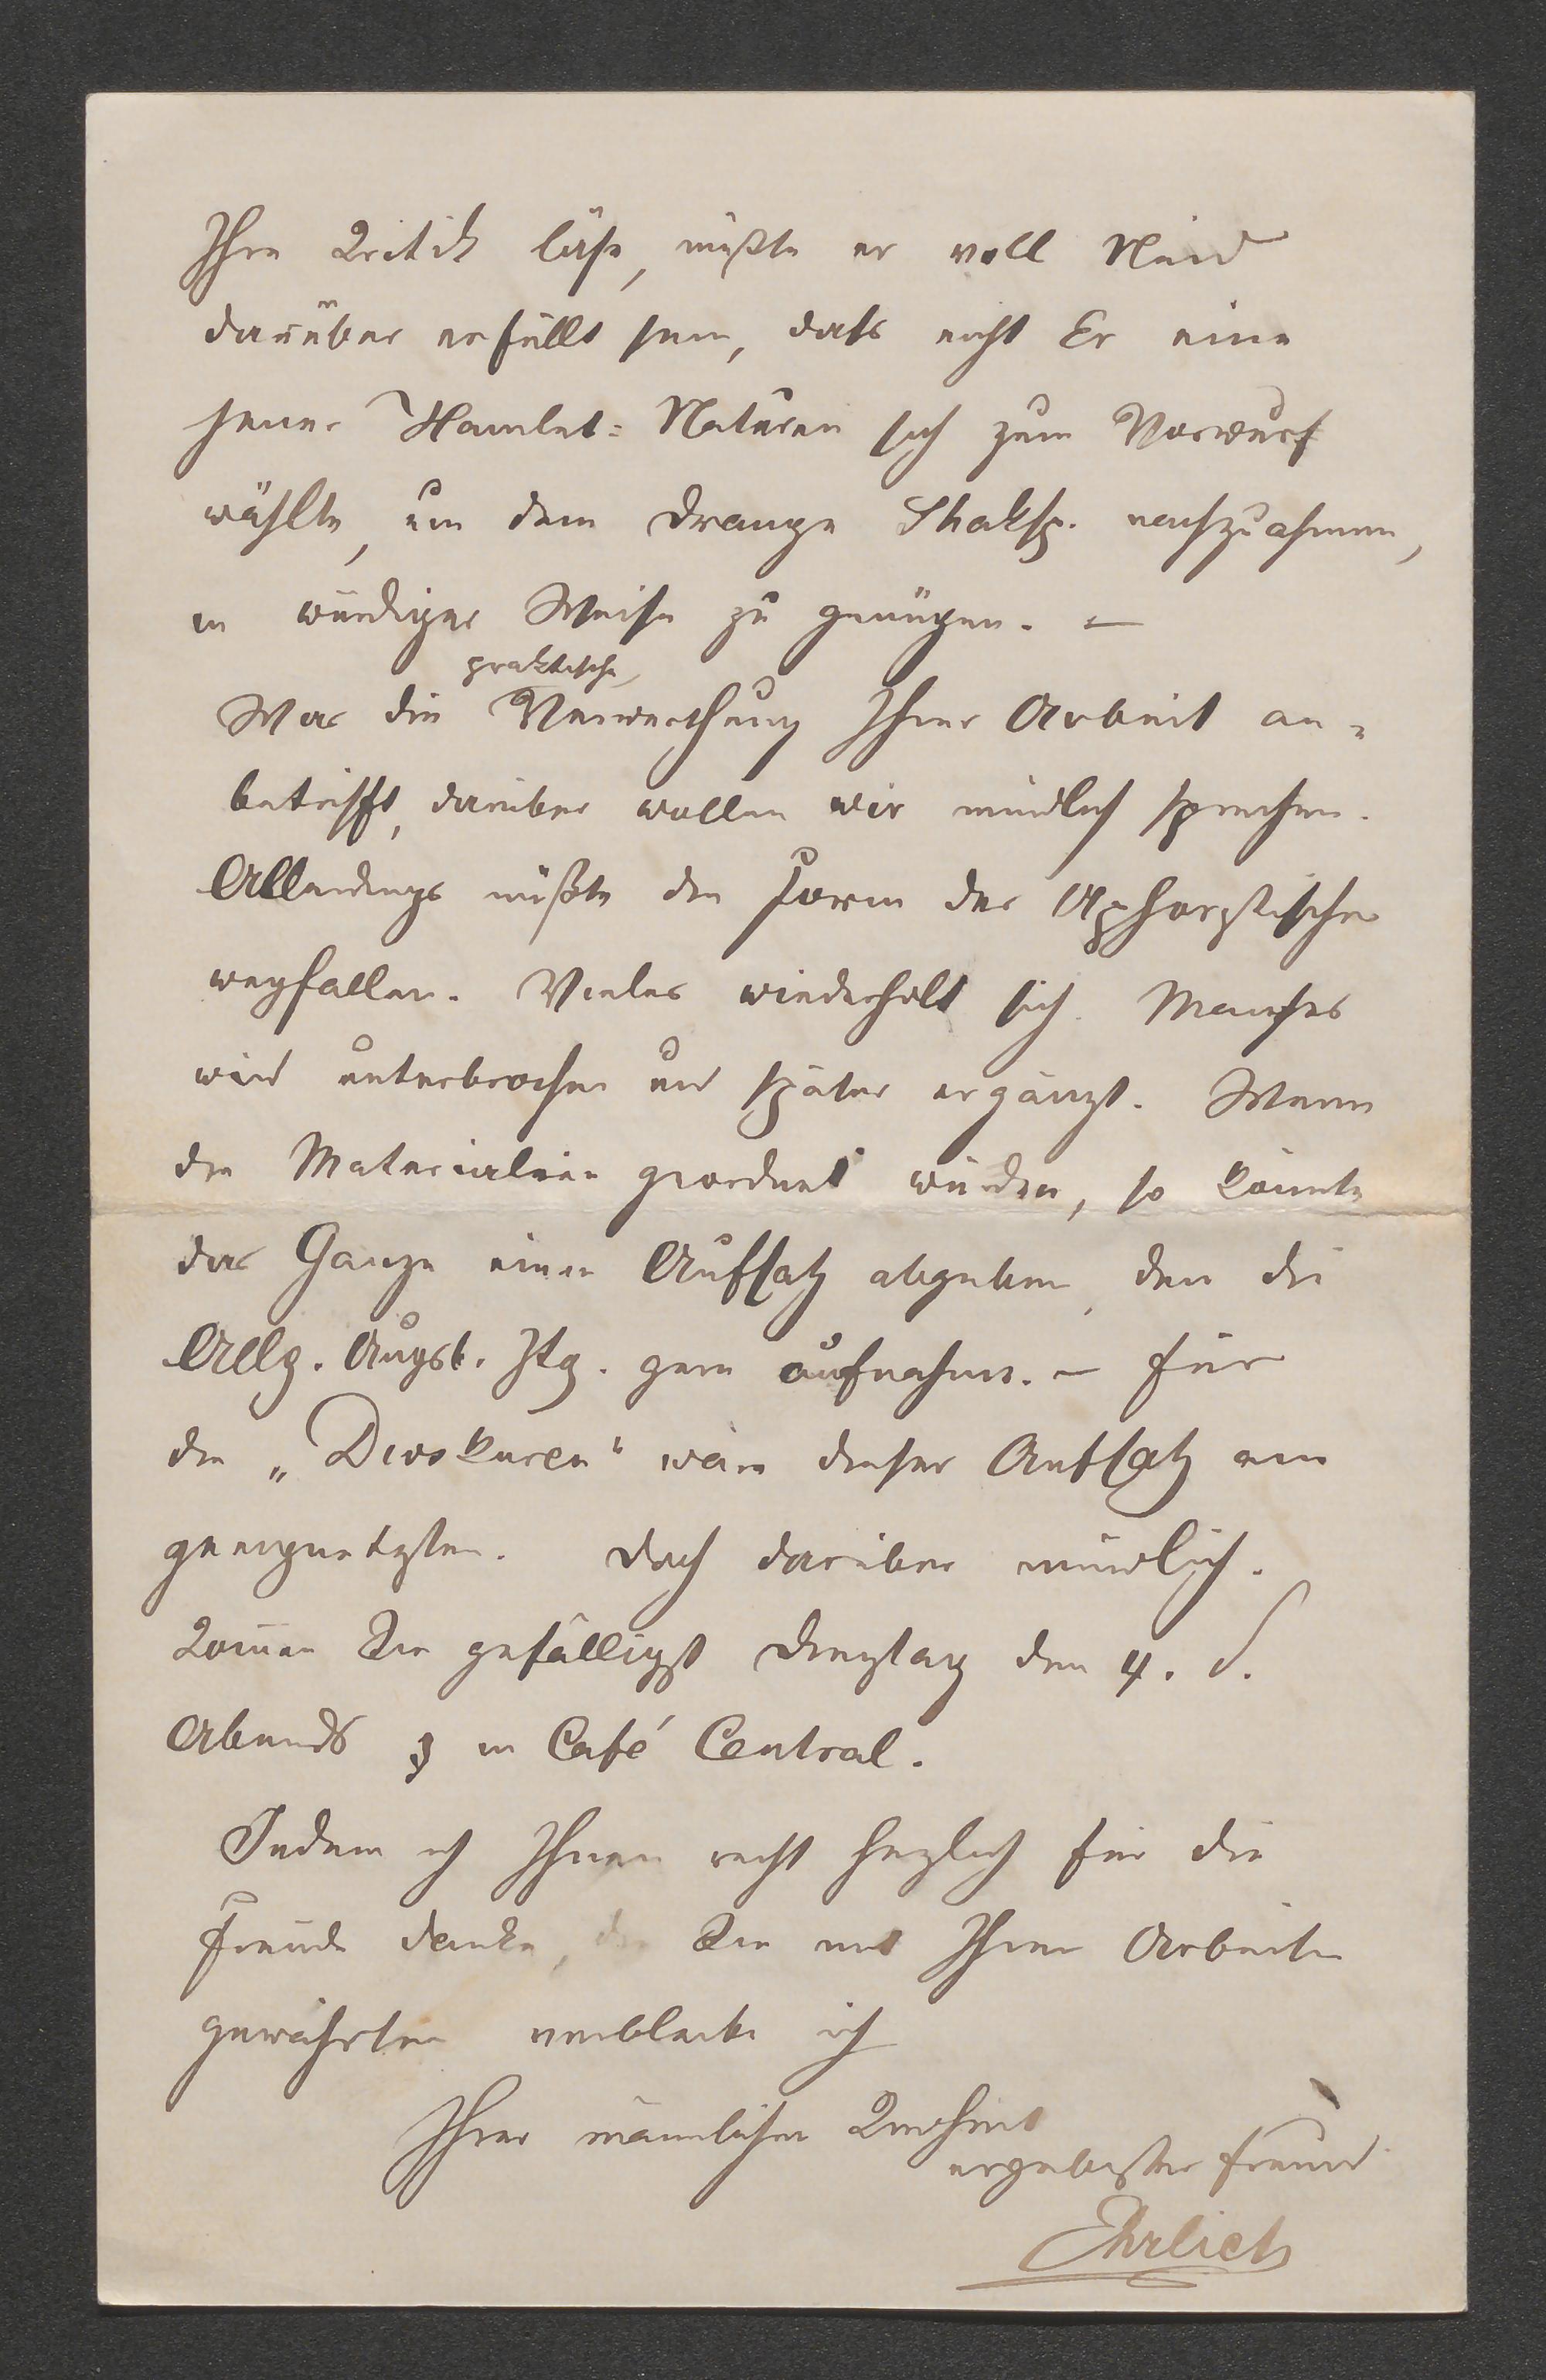 Ihre Kritik läse, müßte er voll Neid
darüber erfüllt sein, dass nicht Er eine
jener Hamlet-Naturen sich zum Vorwurf
wählte, um dem Drange Shaksp. nachzuahmen,
in würdiger Weise zu genügen. —
praktische
Was die Verwerthung Ihrer Arbeit an-
betrifft, darüber wollen wir mündlich sprechen.
Allerdings müßte die Form des Aphoristischen
wegfallen. Vieles wiederholt sich. Manches
wird unterbrochen und später ergänzt. Wenn
die Materialien geordnet würden, so könnte
das Ganze einen Aufsatz abgeben, den die
Allg. Augsb. Ztg. gern aufnahme. — Für
die „Dioskuren“ wäre dieser Aufsatz am
geeignetsten. Doch darüber mündlich.
Kom̅en Sie gefälligst Dienstag den 4. d.
Abends in Café Central.
Indem ich Ihnen recht herzlich für die
Freude danke, die Sie mit Ihren Arbeiten
gewährten verbleibe ich
Ihrer männlichen
ergebenster Freund
Ehrlich